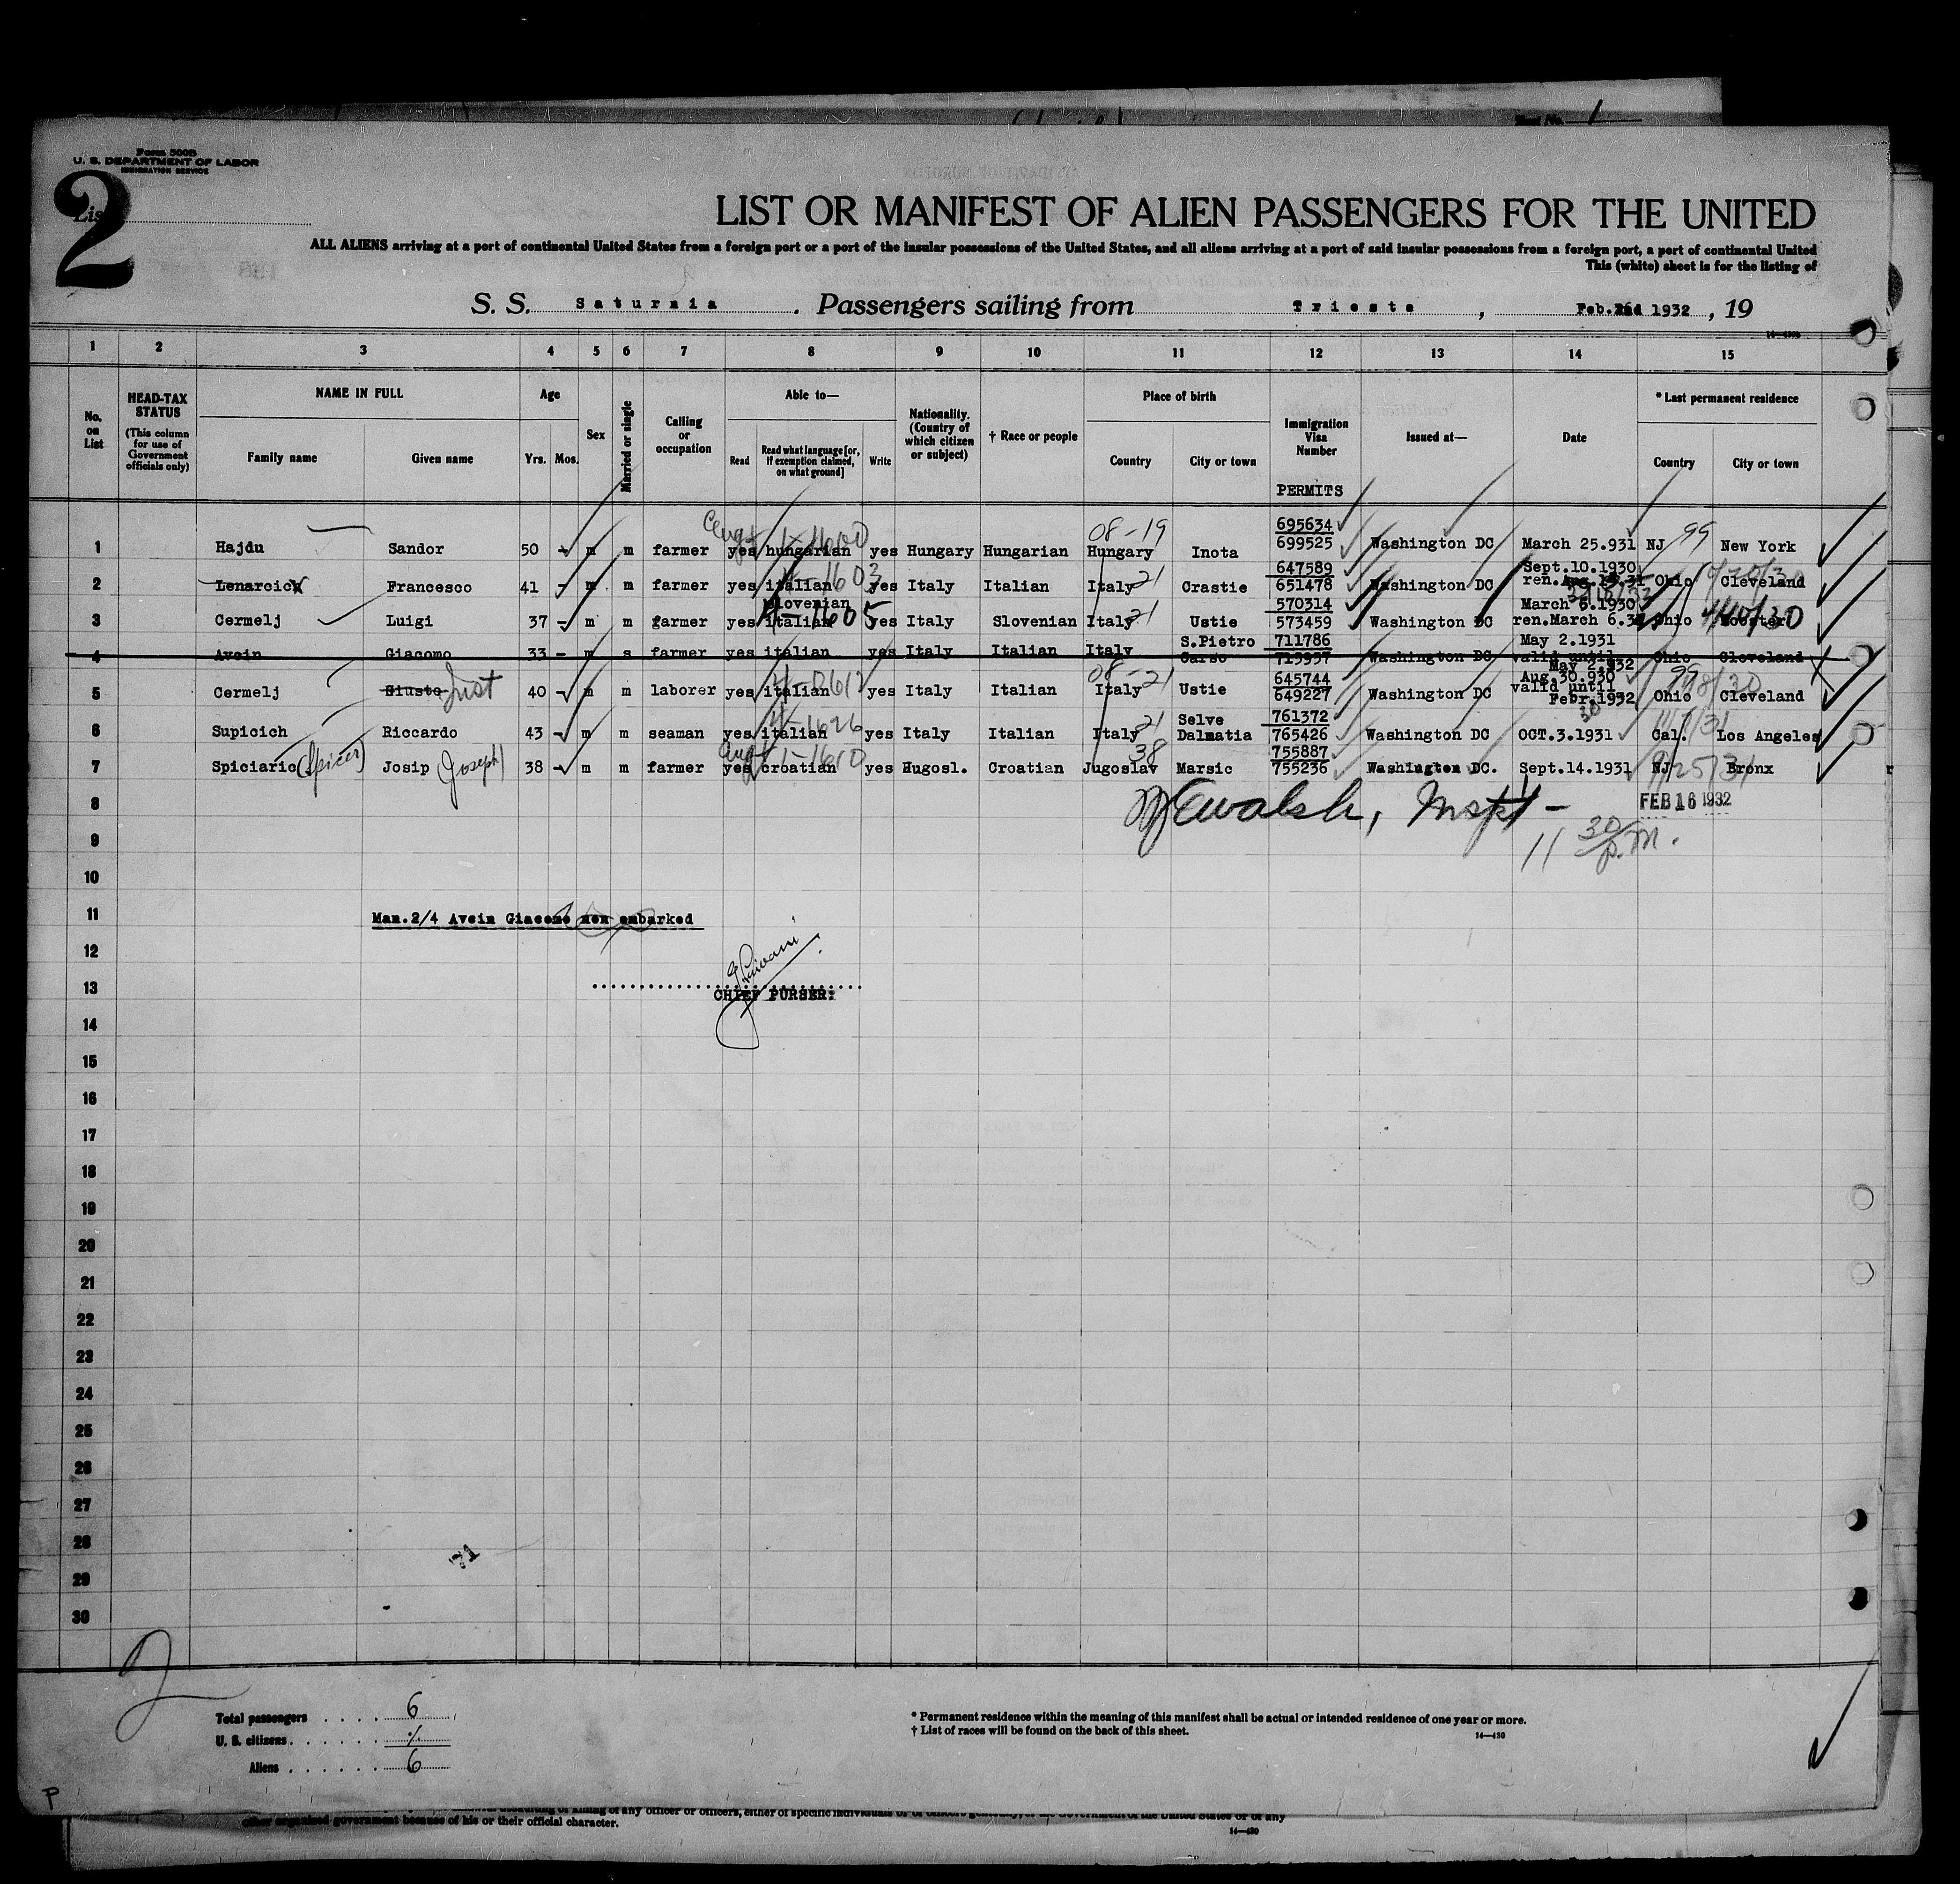 Form 500B
U. S. DEPARTMENT OF LABOR
IMMIGRATION SERVICE
2
LIST OR MANIFEST OF ALIEN PASSENGERS FOR THE UNITED
ALL ALIENS arriving at a port of continental United States from a foreign port or a port of the insular possessions of the United States, and all aliens arriving at a port of said insular possessions from a foreign port, a port of continental United
This (white) sheet is for the listing of
S. S. Saturnia . Passengers sailing from Trieste , Feb. 2nd 1932 , 19
1 2 3 4 5 6 7 8 9 10 11 12 13 14 15
No. on List
HEAD-TAX STATUS
(This column for use of Government officials only)
NAME IN FULL
Family name Given name
Age
Yrs. Mos.
Sex
Married or single
Calling or occupation
Able to—
Read Read what language [or, if exemption claimed, on what ground] Write
Nationality. (Country of which citizen or subject)
† Race or people
Place of birth
Country City or town
Immigration Visa Number
PERMITS
Issued at—
Date
* Last permanent residence
Country City or town
1 Hajdu Sandor 50 - m m farmer yes hungarian yes Hungary Hungarian 08-19 Hungary Inota 695634 699525 Washington DC March 25.931 NJ 99 New York
2 Lenarcich Francesco 41 - m m farmer yes italian yes Italy Italian Italy 21 Crastie 647589 651478 Washington DC Sept.10.1930 ren. Ohio Cleveland
3 Cermelj Luigi 37 - m m farmer yes slovenian italian yes Italy Slovenian Italy 21 Ustie 570314 573459 Washington DC March 6.1930 ren.March 6.31 Ohio Wooster
4 Avcin Giacomo 33 - m s farmer yes italian yes Italy Italian Italy S.Pietro Carso 711786 713957 Washington DC May 2.1931 valid until May 2.932 Ohio Cleveland
5 Cermelj Giusto Just 40 - m m laborer yes italian yes Italy Italian 08-21 Italy Ustie 645744 649227 Washington DC Aug.30.930 valid until Febr.1932 Ohio 99 Cleveland
6 Supicich Riccardo 43 - m m seaman yes italian 4-1626 yes Italy Italian Italy 21 Selve Dalmatia 761372 765426 Washington DC OCT.3.1931 Cal. Los Angeles
7 Spiciaric (Spicer) Josip (Joseph) 38 - m m farmer yes croatian yes Hugosl. Croatian Jugoslav 38 Marsic 755887 755236 Washington DC. Sept.14.1931 NJ 9/25/31 Bronx
8 Walsh, Inspt - FEB 16 1932
9 11 30 p.m.
10
11 Man.2/4 Avcin Giacomo non embarked
12
13 CHIEF PURSER:
14
15
16
17
18
19
20
21
22
23
24
25
26
27
28
29
30
71
2
Total passengers . . . . 6
U. S. citizens . . . . . .
Aliens . . . . . . 6
* Permanent residence within the meaning of this manifest shall be actual or intended residence of one year or more.
† List of races will be found on the back of this sheet.
14—430
P
other organized government because of his or their official character.
14—430